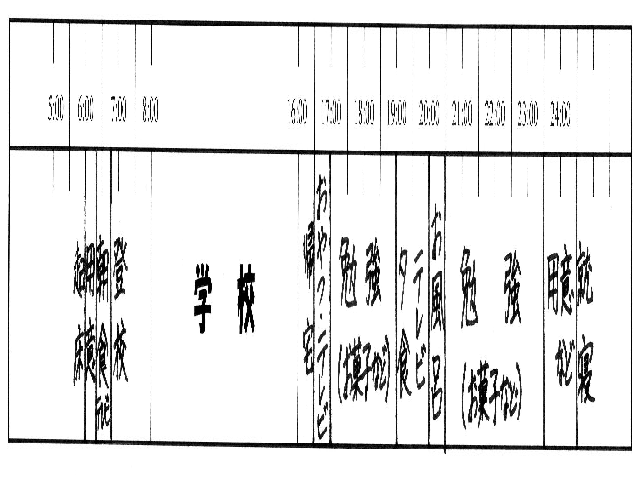 5:00 6:00 7:00 8:00 16:00 17:00 18:00 19:00 20:00 21:00 22:00 23:00 24:00
起床
用意
朝食
テレビ
登校
学校
帰宅
おやつ・テレビ
勉強
(お菓子など)
夕食
テレビ
お風呂
勉強
(お菓子など)
用意
など
就寝